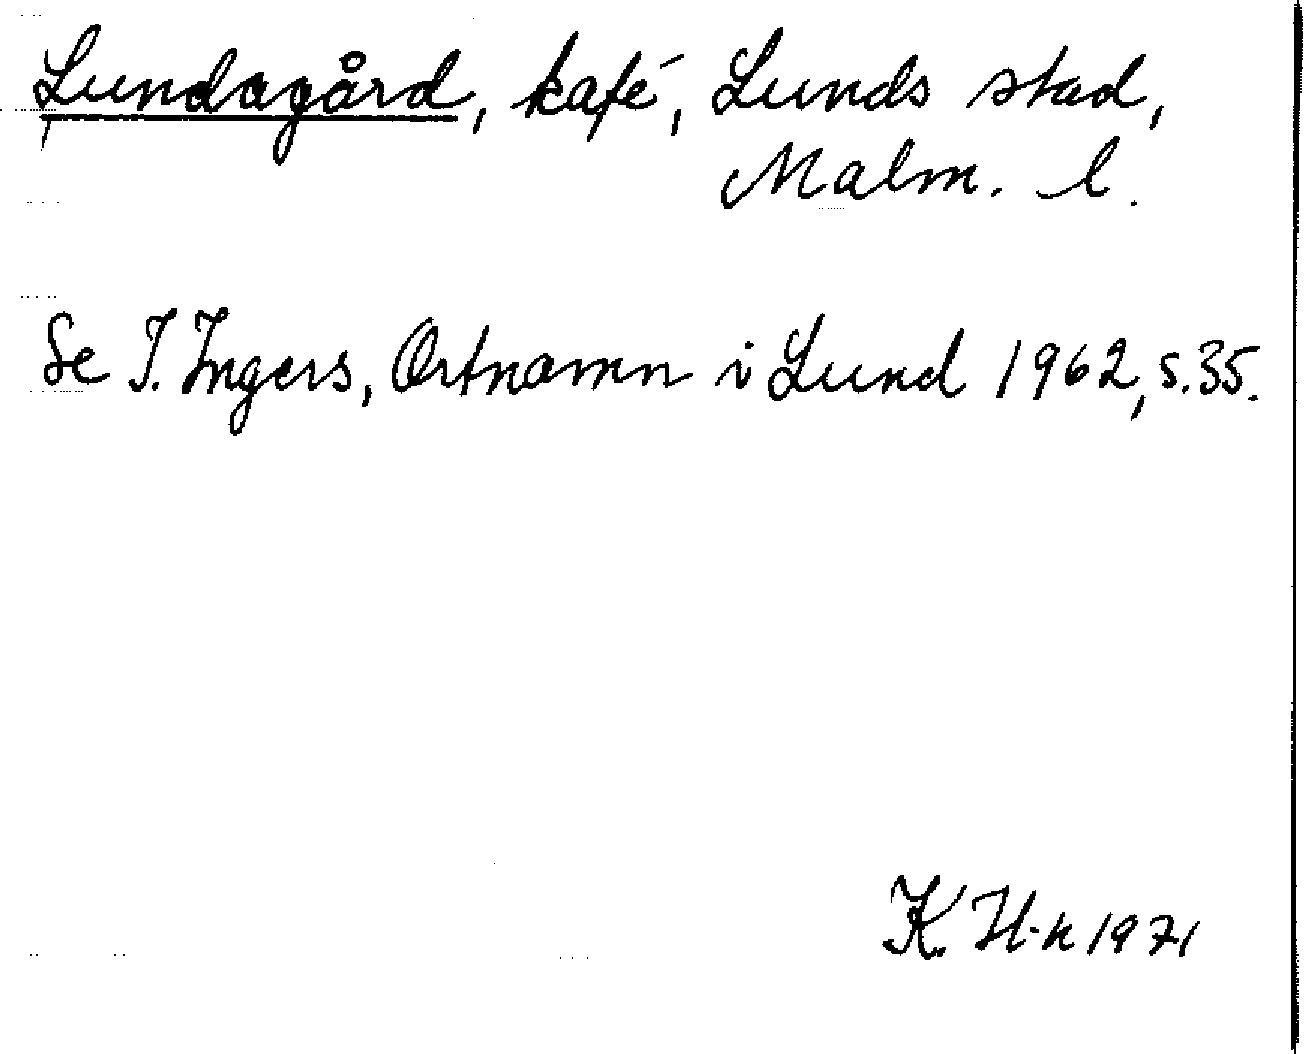 Lundagård, kafé, Lunds stad,
Malm. l.
Se I. Ingers, Ortnamn i Lund 1962, s. 35.
K. H-k 1971